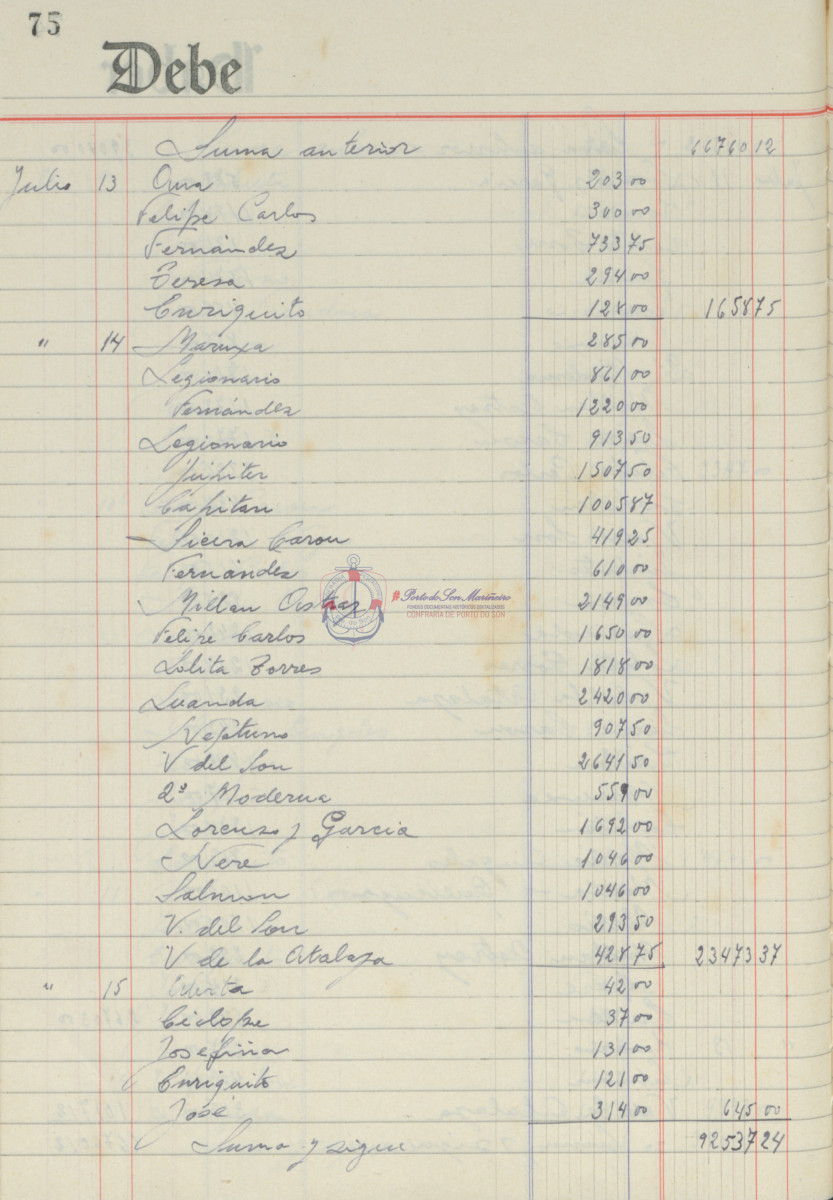 75
Debe
Suma anterior 66760 12
Julio 13 Ana 203 00
Felipe Carlos 300 00
Fernández 733 75
Teresa 294 00
Enriquito 128 00 1658 75
" 14 Maruxa 285 00
Legionario 861 00
Fernández 1220 00
Legionario 913 50
Júpiter 1507 50
Capitan 1005 87
Sieira Carou 419 25
Fernández 610 00
Millan Astray 2149 00
Felipe Carlos 1650 00
Lolita Torres 1818 00
Luanda 2420 00
Neptuno 907 50
V del Son 2641 50
2ª Moderna 559 00
Lorenzo y Garcia 1692 00
Nere 1046 00
Salmon 1046 00
V. del Son 293 50
V de la Atalaya 428 75 23473 37
" 15 42 00
Ciclope 37 00
Josefina 131 00
Enriquito 121 00
José 314 00 645 00
Suma y sigue 92537 24
Porto do Son Mariñeiro
FONDOS DOCUMENTAIS HISTÓRICOS DIXITALIZADOS
CONFRARÍA DE PORTO DO SON